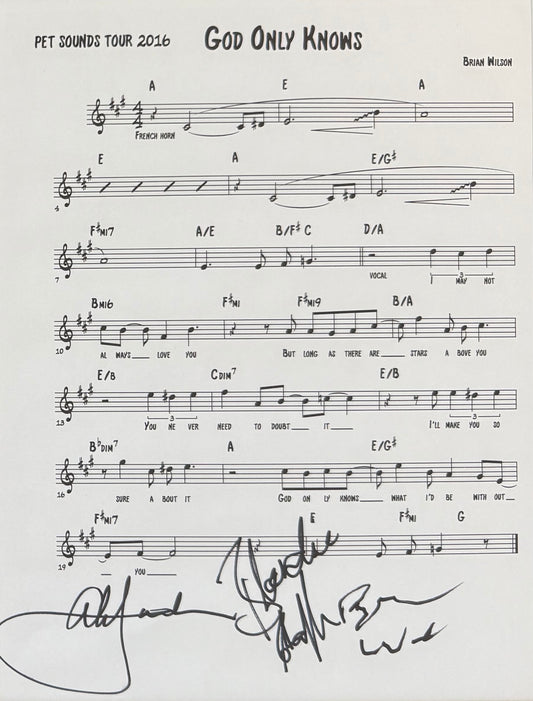 PET SOUNDS TOUR 2016 GOD ONLY KNOWS
BRIAN WILSON
A E A
4
4
FRENCH HORN
E A E/G#
4
F#MI7 A/E B/F# C D/A
7
VOCAL I MAY NOT
3
BMI6 F#MI F#MI9 B/A
10
AL WAYS___ LOVE YOU BUT LONG AS THERE ARE___ STARS A BOVE YOU
E/B CDIM7 E/B
13
3 3
YOU NE VER NEED TO DOUBT___ IT___ I'LL MAKE YOU SO
BbDIM7 A E/G#
16
SURE A BOUT IT GOD ON LY KNOWS___ WHAT I'D BE WITH OUT___
F#MI7 E F#MI G
19
___ YOU___